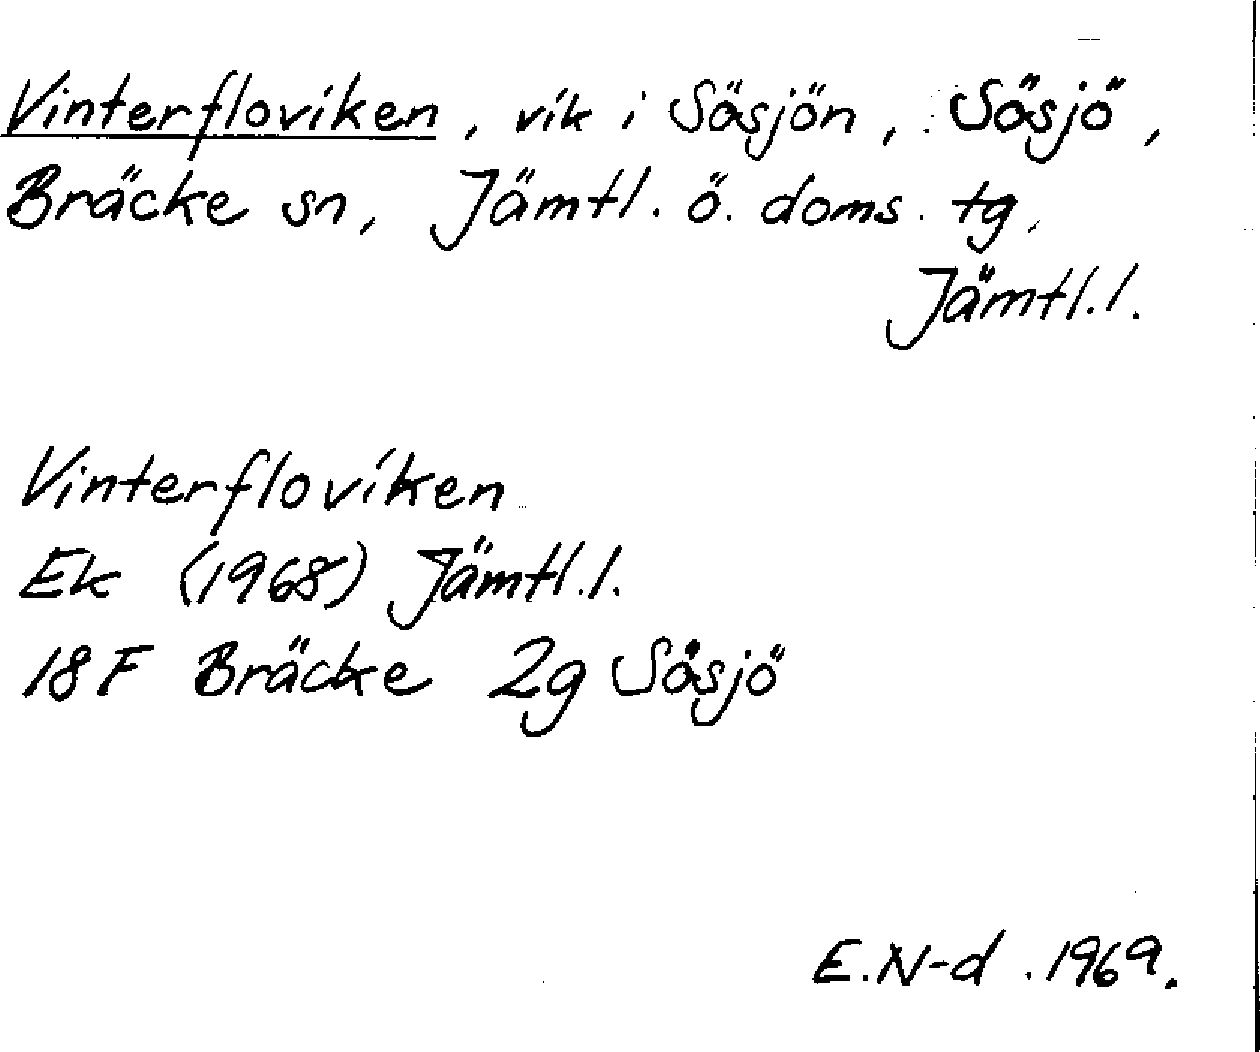 Vinterfloviken, vik i Sösjön, Sösjö,
Bräcke sn, Jämtl. ö. doms. tg,
Jämtl.l.
Vinterfloviken
Ek (1968) Jämtl.l.
18F Bräcke 2g Sösjö
E.N-d. 1969.